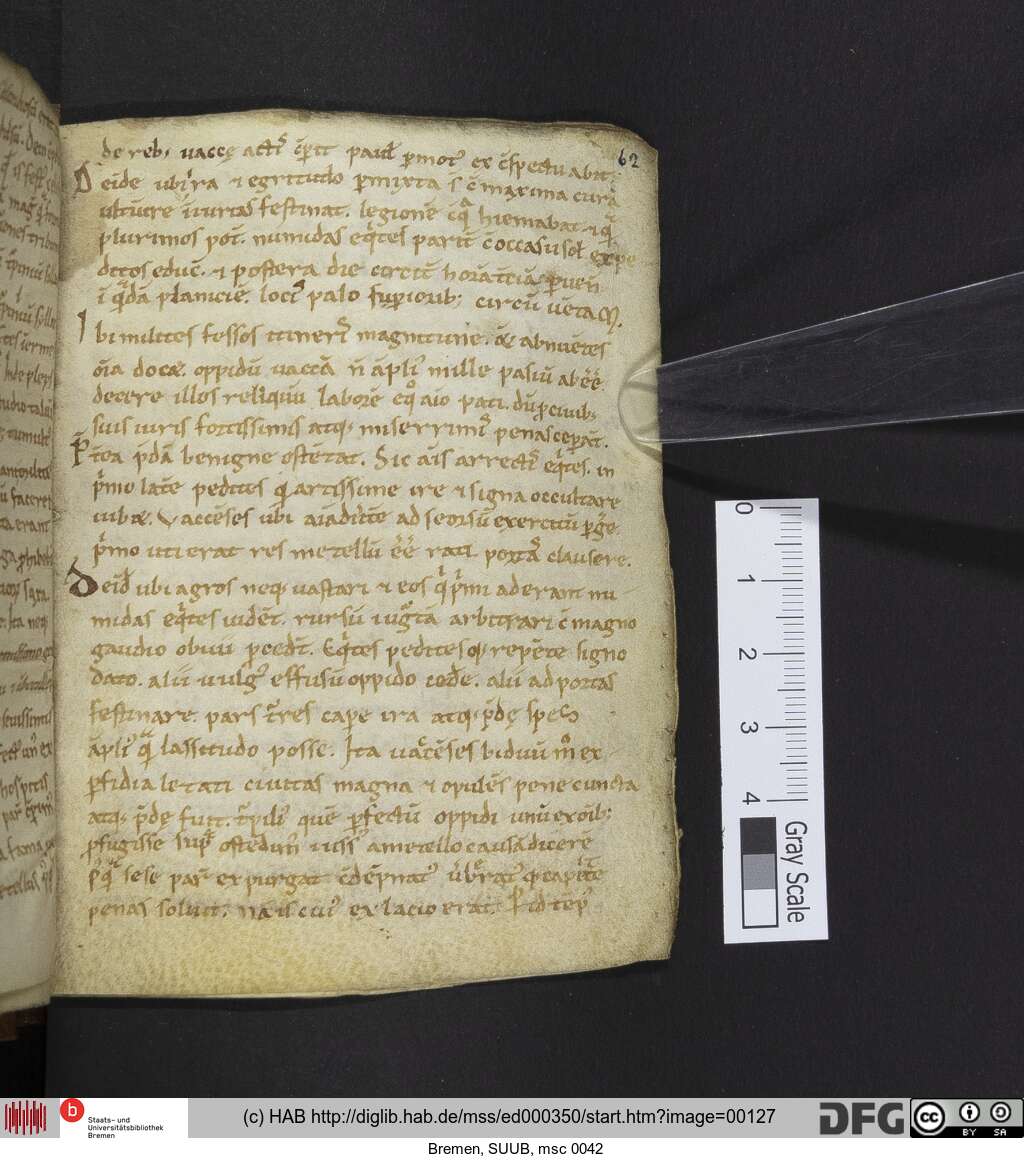 de reb; uaccę actis c̄perit paul̄ ꝑmot᾽ ex c̄spectu abit; 62
Deide ubi ira ⁊ egritudo ꝑmixta s̄ c̄ maxima cura
ultum ire iniurias festinat. legionē c̄ q̄ hiemabat ⁊ q̄
plurimos pot̄. numidas eq̄tes parit̄ c̄ occasu sol̄ expe
ditos educ̄. ⁊ postera die circit̄ horā t̄ciā ꝑuen̄
ī q̄dā planiciē. loc᾽ palo suꝑiorib; circū uētaM.
Ibi milites fessos itiner᾽ magnitudine. & abnuētes
oīa doc&. oppidū uaccā n̄ āpli᾽ mille pasiū abēē
decere illos reliquū laborē eq̊ aīo pati. dū ꝓ ciuib;
suis uiris fortissimis atq; miserrimi᾽ penas cepāt.
P̄tea p̄dā benigne ostētat. Sic aīs arrect᾽ eq̄tes. in
p̄mo late pedites q̄ artissime ire ⁊ signa occultare
iub&. Vaccēses ubi aīaduert̄e ad seorsū exercitū ꝑge.
p̄mo uti erat res metellū ēē rati portā clausere.
Deīd ubi agros neq; uastari ⁊ eos q̄ p̄mi aderant nu
midas eq̄tes uidēt. rursū iugr̄tā arbitrari c̄ magno
gaudio obuii ꝓcedt̄. Eq̄tes peditesq; repēte signo
dato. alii uulg᾽ effusū oppido cede̅. alii ad portas
festinare. pars t̄res cape ira atq; p̄dę spes
āpli᾽ q̄ lassitudo posse. Ita uacēses biduū m̊ ex
ꝑfidia letati ciuitas magna ⁊ opulēs pene cuncta
atq; p̄dę fuit. t̄pili᾽ quē p̄fectū oppidi unū ex oīb;
ꝓfugisse sup̄ ostēdim᾽ iuss᾽ a metello causā dicere
p᾽q̄ sese par̄ expurgat c̄dēpnat᾽ ūb̄rat᾽q; capite
penas soluit. nā is ciui᾽ ex lacio erat. P̄ id tēp᾽
0 1 2 3 4
Gray Scale
b Staats- und Universitätsbibliothek Bremen
(c) HAB http://diglib.hab.de/mss/ed000350/start.htm?image=00127
DFG
cc BY SA
Bremen, SUUB, msc 0042